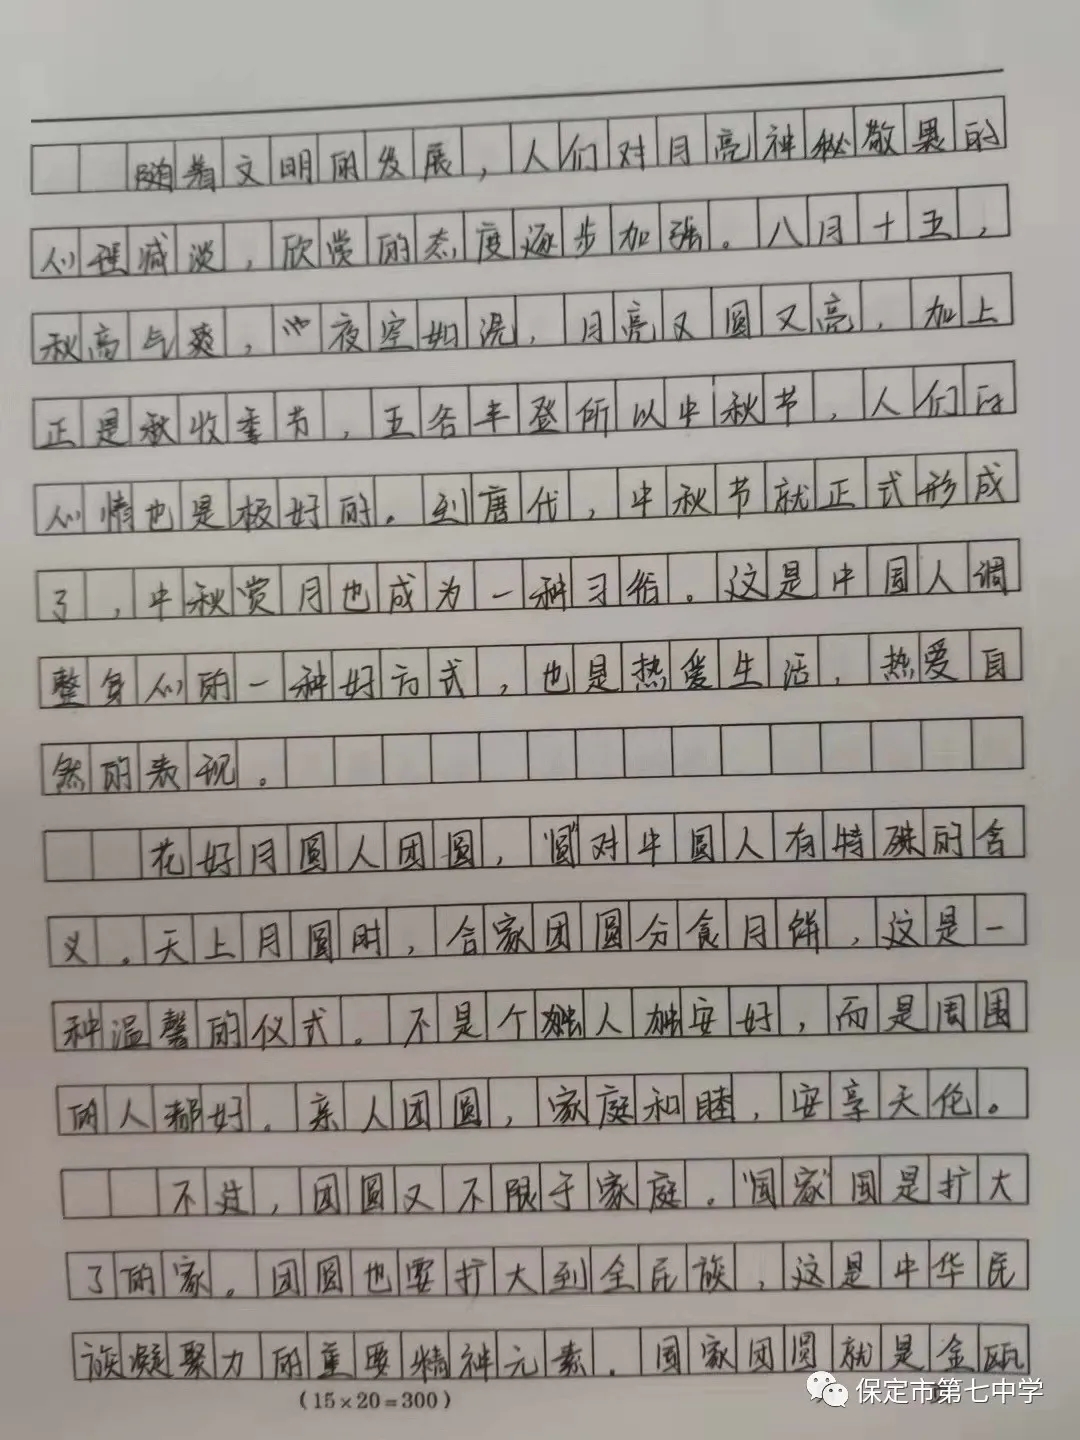 随着文明的发展，人们对月亮神秘敬畏的
心理减淡，欣赏的态度逐步加强。八月十五，
秋高气爽，夜空如洗，月亮又圆又亮，加上
正是秋收季节，五谷丰登所以中秋节，人们的
心情也是极好的。到唐代，中秋节就正式形成
了，中秋赏月也成为一种习俗。这是中国人调
整身心的一种好方式，也是热爱生活，热爱自
然的表现。
花好月圆人团圆，"圆"对中国人有特殊的含
义。天上月圆时，合家团圆分食月饼，这是一
种温馨的仪式。不是个独人独安好，而是周围
的人都好。亲人团圆，家庭和睦，安享天伦。
不过，团圆又不限于家庭。"国家"国是扩大
了的家。团圆也要扩大到全民族，这是中华民
族凝聚力的重要精神元素。国家团圆就是金瓯
(15×20=300)
保定市第七中学